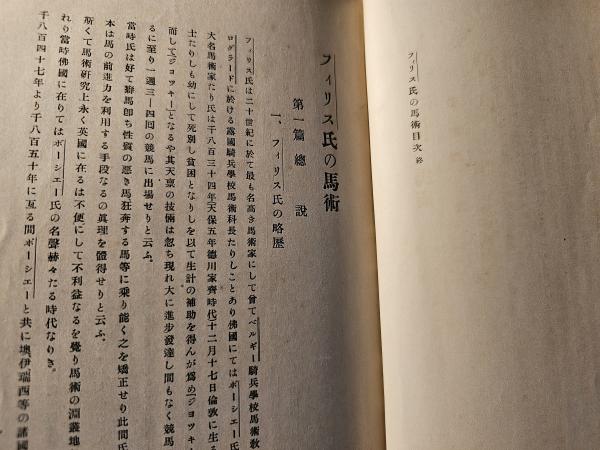 フィリス氏の馬術目次 終
フィリス氏の馬術
第一篇 總說
一、フィリス氏の略歷
フィリス氏は二十世紀に於て最も名高き馬術家にして曾てベルギー騎兵學校馬術敎
ログラードに於ける露國騎兵學校馬術科長たりしことあり佛國にてはボーシエー氏
大名馬術家たり氏は千八百三十四年(天保五年德川家齊時代)十二月十七日倫敦に生る
士たりしも幼にして死別し貧困となりしを以て生計の補助を得んが爲め「ジョッキー
而して「ジョッキー」となるや其天禀の技倆は忽ち現れ大に進步發達し間もなく競馬
るに至り一週三―四回の競馬に出場せりと云ふ。
當時氏は好て癖馬卽ち性質の惡き馬狂奔する馬等に乘り能く之を矯正せり此間氏
本は馬の前進力を利用する手段なるの眞理を體得せりと云ふ。
斯くて馬術硏究上永く英國に在るは不便にして不利益なるを覺り馬術の淵叢地
れり當時佛國に在りてはボーシエー氏の名聲赫々たる時代なりき。
千八百四十七年より千八百五十年に亙る間ボーシエーと共に墺、伊、瑞西等の諸國